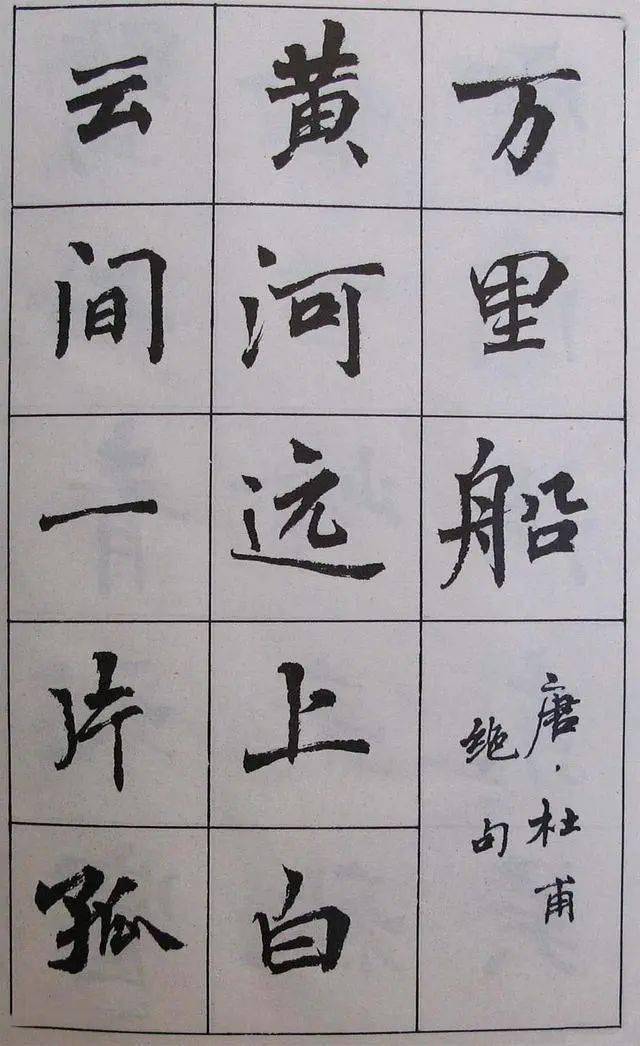 万里船
唐·杜甫
绝句
黄河远上白
云间一片孤